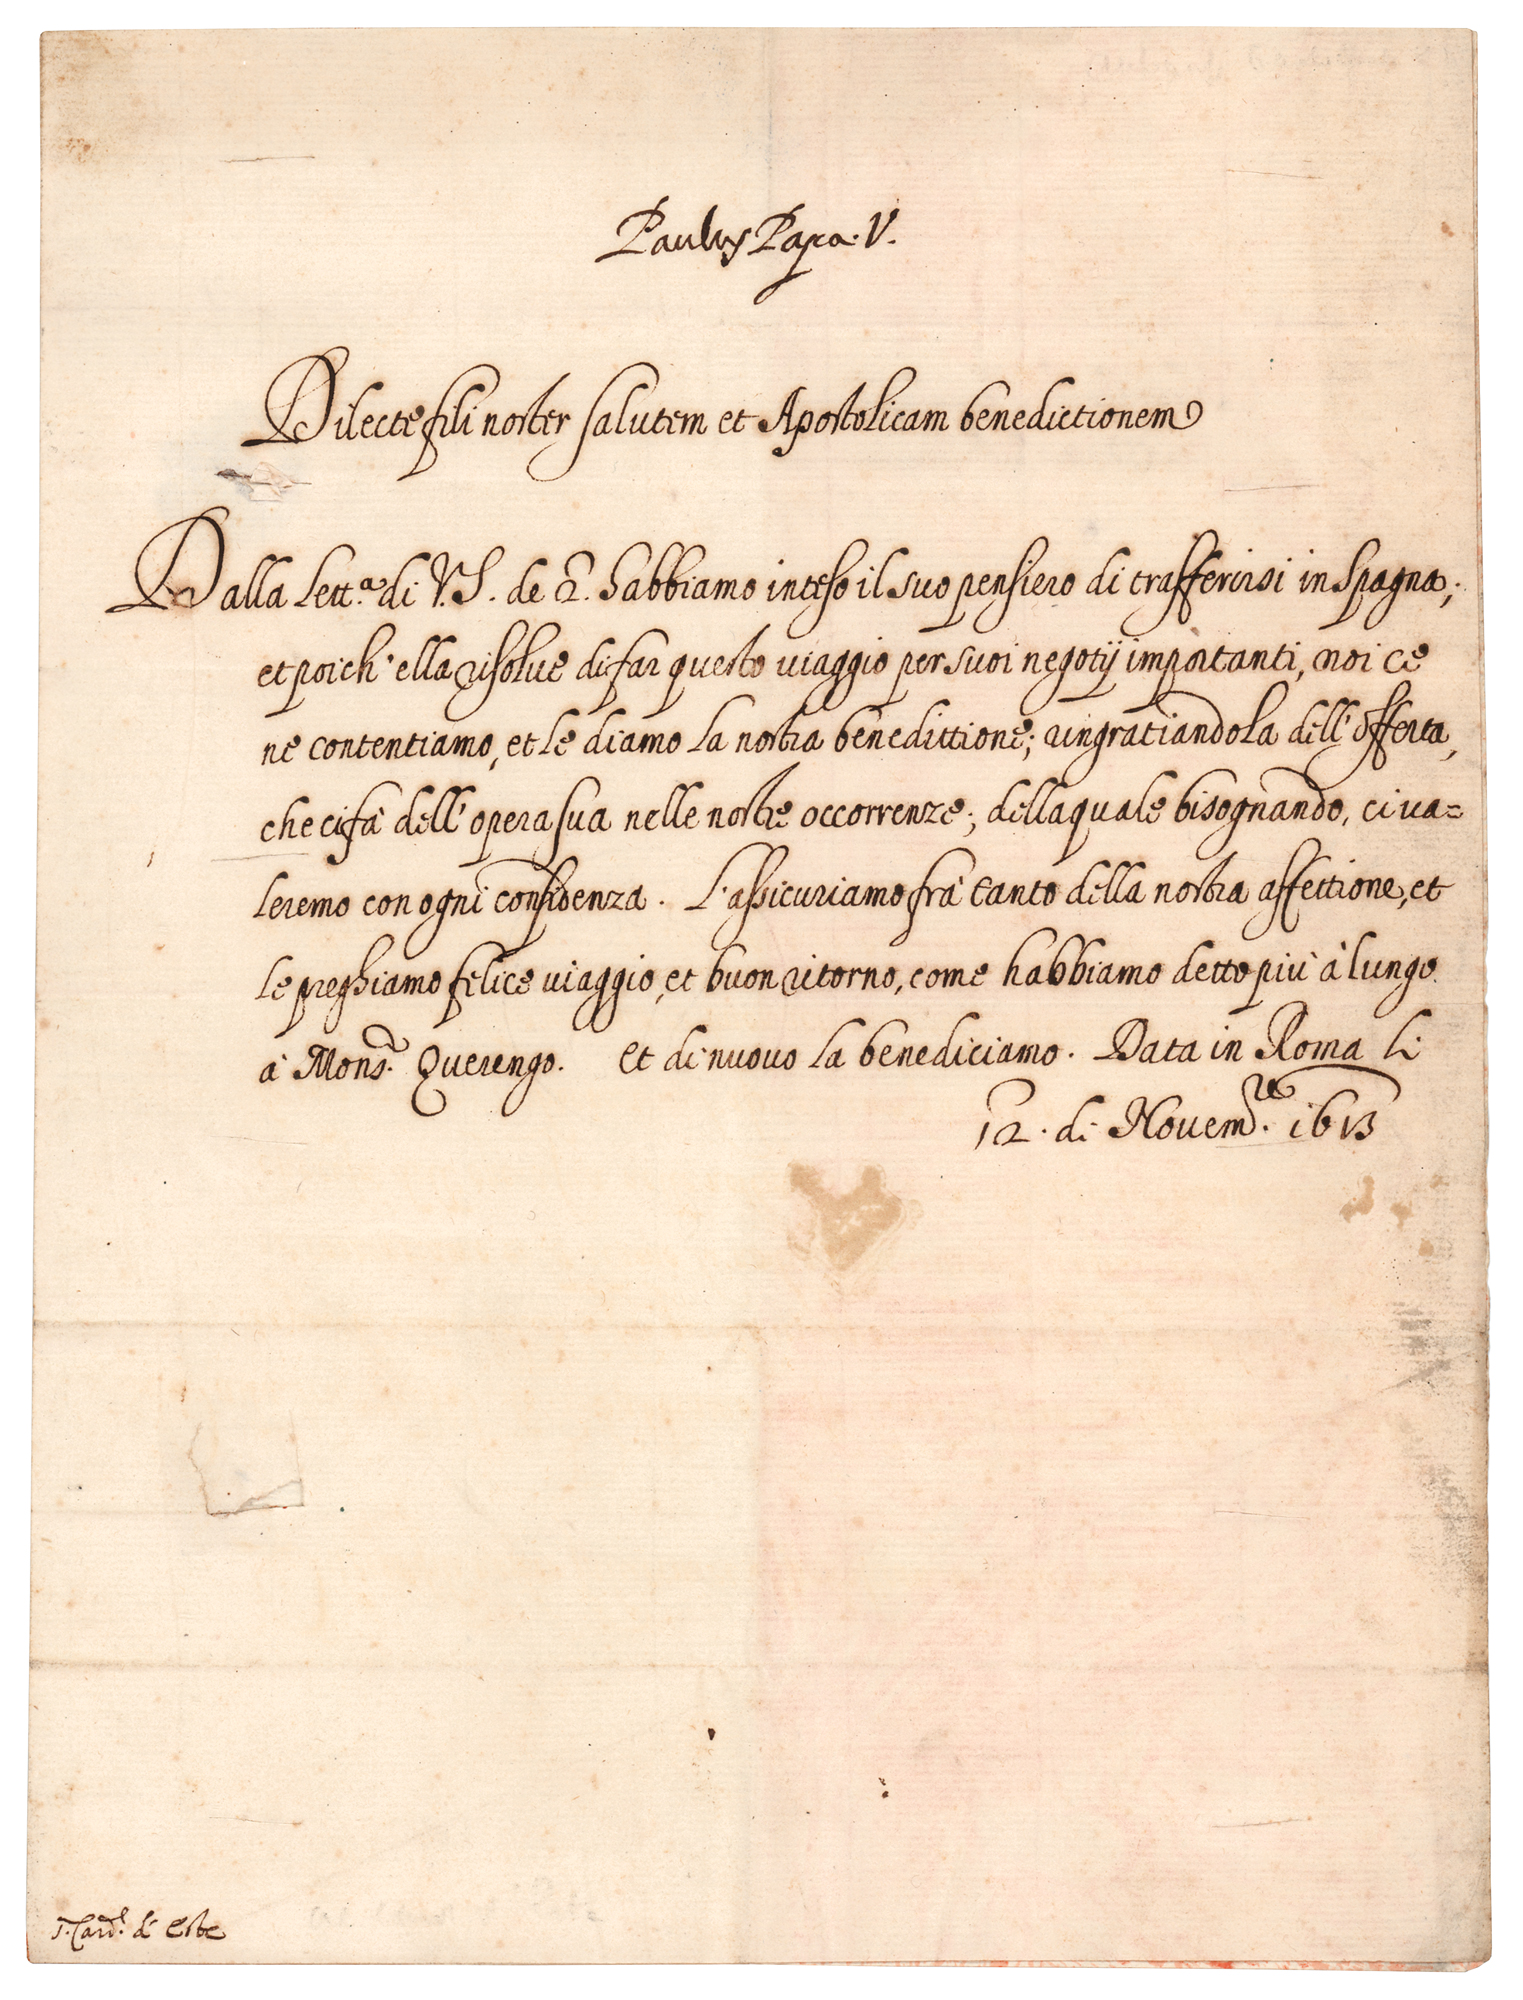 Paulus Papa. V.
Dilecte fili noster salutem et Apostolicam benedictionem
Dalla Lett.ª di V.S. de 2. habbiamo inteso il suo pensiero di trasferirsi in Spagna;
et poich' ella risolve di far questo viaggio per suoi negotij importanti, noi ce
ne contentiamo, et le diamo la nostra benedittione; ringratiandola dell' offerta,
che ci fa dell' opera sua nelle nostre occorrenze; della quale bisognando, ci va=
leremo con ogni confidenza. L'assicuriamo frà tanto della nostra affettione, et
le preghiamo felice viaggio, et buon ritorno, come habbiamo detto più à lungo
à Mons.r Querengo. Et di nuovo la benediciamo. Data in Roma li
12. di Novem.re 1613
S. Card.l d' Este